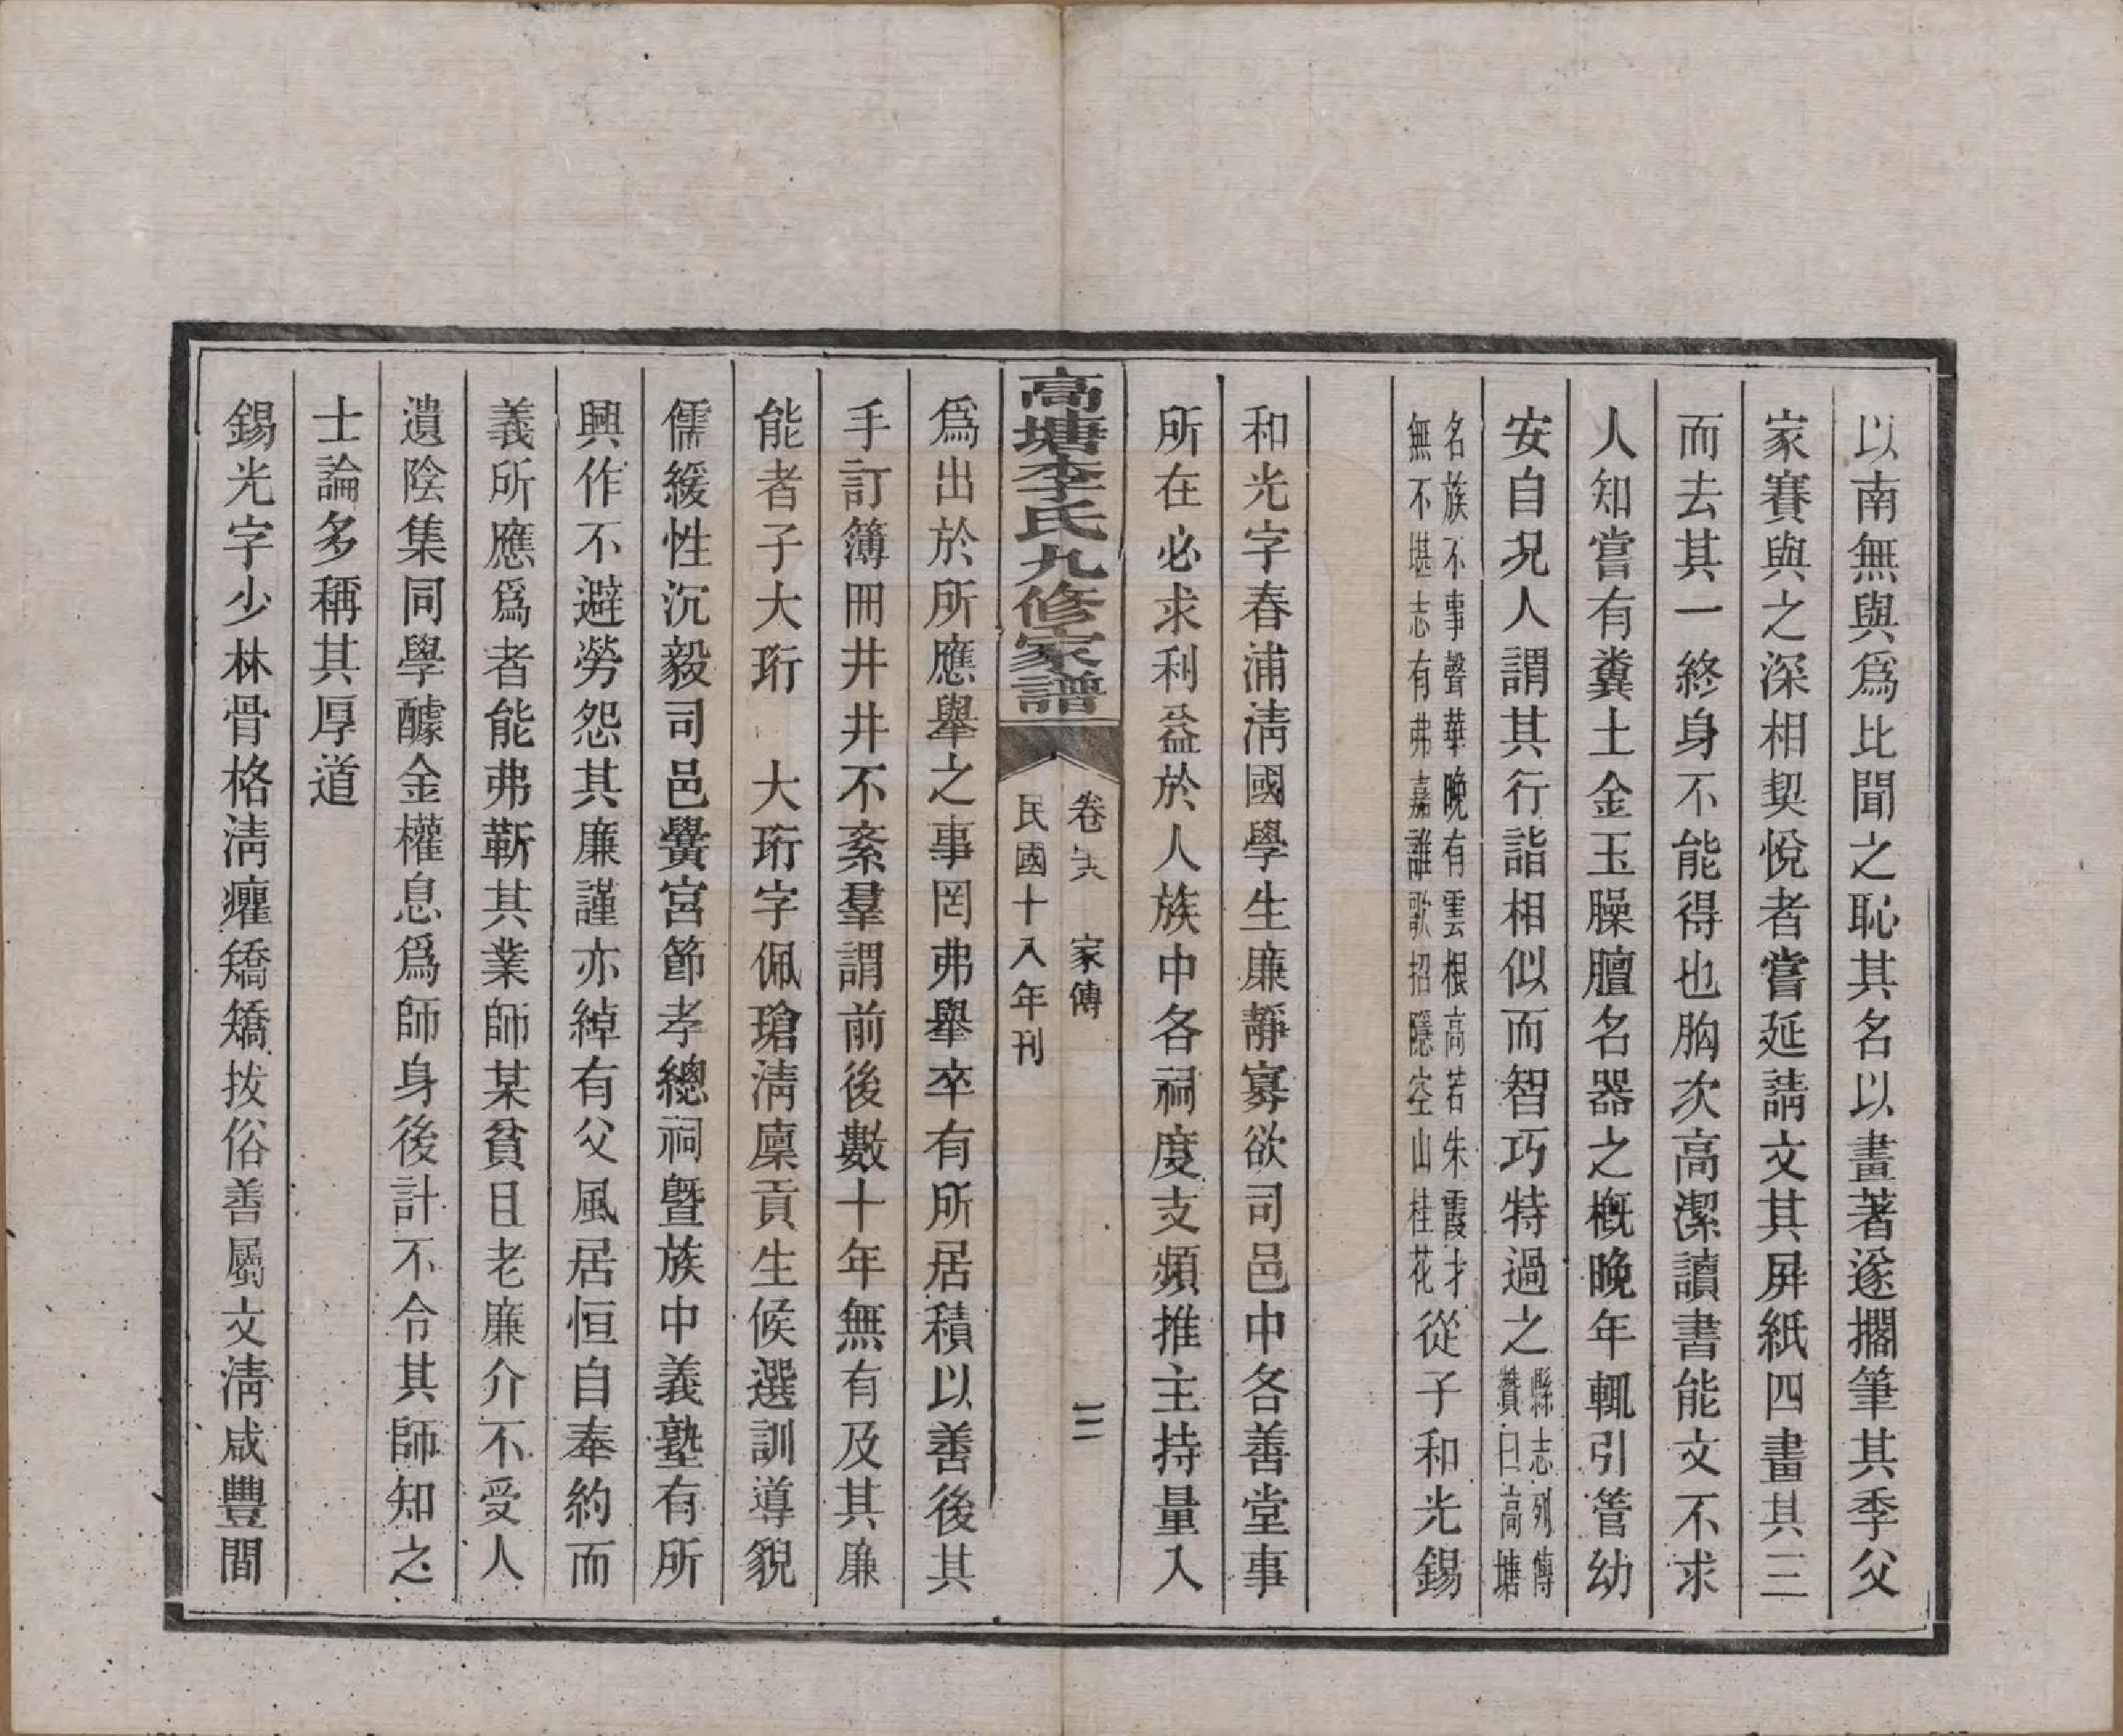 以南無與爲比聞之恥其名以畫著遂擱筆其季父
家賽與之深相契悅者嘗延請文其屏紙四畫其三
而去其一終身不能得也胸次高潔讀書能文不求
人知嘗有糞土金玉臊膻名器之槪晚年輒引管幼
安自況人謂其行詣相似而智巧特過之縣志列傳贊曰高塘
名族不事聲華晚有雲根高若朱霞才無不堪志有弗嘉誰歌招隱空山桂花從子和光錫
和光字春浦淸國學生廉靜寡欲司邑中各善堂事
所在必求利益於人族中各祠度支頻推主持量入
高塘李氏九修家譜
卷 家傳
三
民國十八年刊
爲出於所應舉之事罔弗舉卒有所居積以善後其
手訂簿冊井井不紊羣謂前後數十年無有及其廉
能者子大珩 大珩字佩瑲淸廩貢生候選訓導貌
儒緩性沉毅司邑黌宮節孝總祠曁族中義塾有所
興作不避勞怨其廉謹亦綽有父風居恒自奉約而
義所應爲者能弗靳其業師某貧且老廉介不受人
遺陰集同學醵金權息爲師身後計不令其師知之
士論多稱其厚道
錫光字少林骨格淸癯矯矯拔俗善屬文淸咸豐間